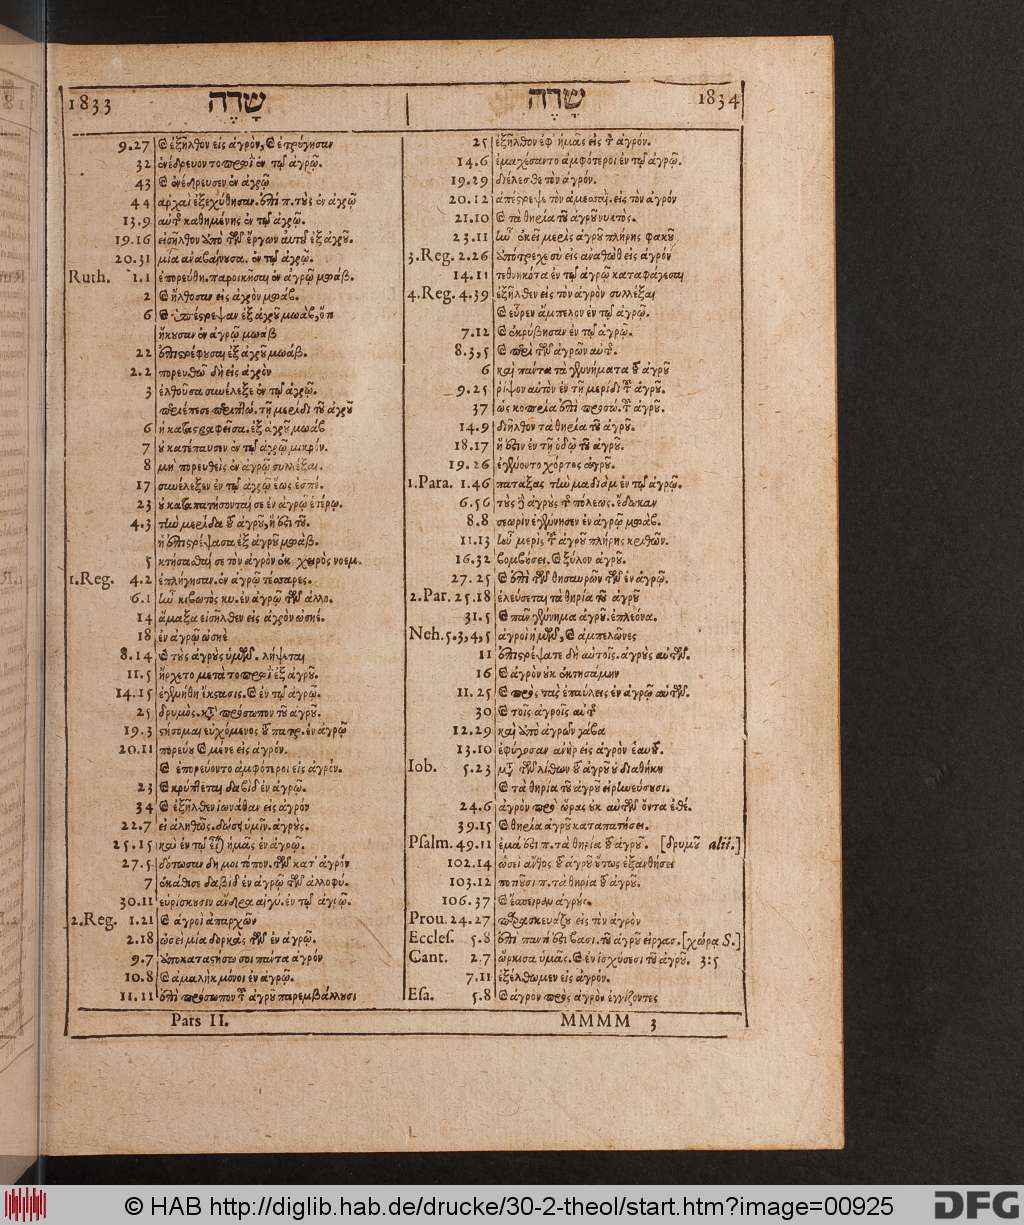 1833 שָׂדֶה
9.27 Ϗ ἐξῆλθον εἰς ἀγρὸν, Ϗ ἐτρύγησαν
32 ἐνέδρευον τὸ πρωῒ ἐν τῷ ἀγρῷ.
43 Ϗ ἐνέδρευσεν ἐν ἀγρῷ
44 ἀρχαὶ ἐξεχύθησαν. ἐπὶ π. τοὺς ἐν ἀγρῷ
13.9 αὐτ καθημένης ἐν τῷ ἀγρῷ.
19.16 εἰσῆλθεν ἀπὸ τῶν ἔργων αὐτοῦ ἐξ ἀγροῦ.
20.31 μία ἀναβαίνουσα. ἐν τῷ ἀγρῷ.
Ruth. 1.1 ἐπορεύθη. παροικῆσαι ἐν ἀγρῷ μωάβ.
2 Ϗ ἤλθοσαν εἰς ἀγρὸν μωάβ.
6 Ϗ ἀπέστρεψαν ἐξ ἀγροῦ μωὰβ, ὅτι
ἤκουσαν ἐν ἀγρῷ μωαβ
22 ἐπιστρέφουσαι ἐξ ἀγροῦ μωάβ.
2.2 πορευθῶ δὴ εἰς ἀγρὸν
3 ἐλθοῦσα συνέλεξε ἐν τῷ ἀγρῷ.
περιέπεσε περιπτώ. τῇ μερίδι τοῦ ἀγροῦ
6 ἡ καταστραφεῖσα. ἐξ ἀγροῦ μωάβ
7 οὐ κατέπαυσεν ἐν τῷ ἀγρῷ μικρόν.
8 μὴ πορευθεὶς ἐν ἀγρῷ συλλέξαι.
17 συνέλεξεν ἐν τῷ ἀγρῷ ἕως ἑσπέ.
23 οὐ καταπατήσονταί σε ἐν ἀγρῷ ἑτέρῳ.
4.3 τὴν μερίδα τοῦ ἀγροῦ, ἥ ἐστι τοῦ.
ἡ ἐπιστρέψασα ἐξ ἀγροῦ μωάβ.
5 κτήσασθαί σε τὸν ἀγρὸν ἐκ χειρὸς νοεμ.
1.Reg. 4.2 ἐπλήγησαν. ἐν ἀγρῷ τέσσαρες.
6.1 ἦν κιβωτὸς κυ. ἐν ἀγρῷ τῶν ἀλλο.
14 ἅμαξα εἰσῆλθεν εἰς ἀγρὸν ὡσηέ.
18 ἐν ἀγρῷ ὡσηὲ
8.14 Ϗ τοὺς ἀγροὺς ὑμῶν. λήψεται
11.5 ἤρχετο μετὰ τὸ πρωῒ ἐξ ἀγροῦ.
14.15 ἐγενήθη ἔκστασις. Ϗ ἐν τῷ ἀγρῷ.
25 δρυμὸς. κατὰ πρόσωπον τοῦ ἀγροῦ.
19.3 στήσομαι ἐχόμενος τοῦ πατρ. ἐν ἀγρῷ
20.11 πορεύου Ϗ μένε εἰς ἀγρόν.
Ϗ ἐπορεύοντο ἀμφότεροι εἰς ἀγρόν.
23 Ϗ κρύπτεται δαβὶδ ἐν ἀγρῷ.
34 Ϗ ἐξῆλθεν ἰωνάθαν εἰς ἀγρόν
22.7 εἰ ἀληθῶς. δώσει ὑμῖν. ἀγροὺς.
25.15 καὶ ἐν τῷ εἶναι ἡμᾶς ἐν ἀγρῷ.
27.5 δότωσαν δή μοι τόπον. τῶν κατ᾽ ἀγρόν
7 ἐκάθισε δαβὶδ ἐν ἀγρῷ τῶν ἀλλοφύ.
30.11 εὑρίσκουσιν ἄνδρα αἰγύ. ἐν τῷ ἀγρῷ.
2.Reg. 1.21 Ϗ ἀγροὶ ἀπαρχῶν
2.18 ὡσεὶ μία δορκὰς τῶν ἐν ἀγρῷ.
9.7 ἀποκαταστήσω σοι πάντα ἀγρόν
10.8 Ϗ ἀμαλὴκ μόνοι ἐν ἀγρῷ.
11.11 ἐπὶ πρόσωπον τοῦ ἀγροῦ παρεμβάλλουσι
Pars II.
שָׂדֶה 1834
25 ἐξῆλθον ἐφ᾽ ἡμᾶς εἰς τὸν ἀγρόν.
14.6 ἐμαχέσαντο ἀμφότεροι ἐν τῷ ἀγρῷ.
19.29 διέλεσθε τὸν ἀγρόν.
20.12 ἀπέστρεψε τὸν ἀμεσσαῒ. εἰς τὸν ἀγρόν
21.10 Ϗ τὰ θηρία τοῦ ἀγροῦ νυκτὸς.
23.11 ἦν ἐκεῖ μερὶς ἀγροῦ πλήρης φακοῦ
3.Reg. 2.26 ἀπότρεχε σὺ εἰς ἀναθὼθ εἰς ἀγρόν
14.11 τεθνηκότα ἐν τῷ ἀγρῷ καταφάγεσαι
4.Reg. 4.39 ἐξῆλθεν εἰς τὸν ἀγρὸν συλλέξαι
Ϗ εὗρεν ἄμπελον ἐν τῷ ἀγρῷ.
7.12 Ϗ ἐκρύβησαν ἐν τῷ ἀγρῷ.
8.3,5 Ϗ περὶ τῶν ἀγρῶν αὐτ.
6 καὶ πάντα τὰ γεννήματα τοῦ ἀγροῦ
9.25 ῥίψον αὐτὸν ἐν τῇ μερίδι τοῦ ἀγροῦ.
37 ὡς κοπρία ἐπὶ προσώ. τοῦ ἀγροῦ.
14.9 διῆλθον τὰ θηρία τοῦ ἀγροῦ.
18.17 ἥ ἐστιν ἐν τῇ ὁδῷ τοῦ ἀγροῦ.
19.26 ἐγένοντο χόρτος ἀγροῦ.
1.Para. 1.46 πατάξας τὴν μαδιὰμ ἐν τῷ ἀγρῷ.
6.56 τοὺς ἀγροὺς τῆς πόλεως. ἔδωκαν
8.8 σεωρὶν ἐγέννησεν ἐν ἀγρῷ μωάβ.
11.13 ἦν μερὶς τοῦ ἀγροῦ πλήρης κριθῶν.
16.32 βομβήσει. Ϗ ξύλον ἀγροῦ.
27.25 Ϗ ἐπὶ τῶν θησαυρῶν τῶν ἐν ἀγρῷ.
2.Par. 25.18 ἐλεύσεται τὰ θηρία τοῦ ἀγροῦ
31.5 Ϗ πᾶν γέννημα ἀγροῦ. ἐπλεόνα.
Neh. 5.3,4,5 ἀγροὶ ἡμῶν, Ϗ ἀμπελῶνες
11 ἐπιστρέψατε δὴ αὐτοῖς. ἀγροὺς αὐτῶν.
16 Ϗ ἀγρὸν οὐκ ἐκτησάμην
11.25 Ϗ πρὸς τὰς ἐπαύλεις ἐν ἀγρῷ αὐτῶν.
30 Ϗ τοῖς ἀγροῖς αὐτ
12.29 καὶ ἀπὸ ἀγρῶν γάβα
13.10 ἐφύγοσαν ἀνὴρ εἰς ἀγρὸν ἑαυτοῦ.
Iob. 5.23 μετὰ τῶν λίθων τοῦ ἀγροῦ ἡ διαθήκη
Ϗ τὰ θηρία τοῦ ἀγροῦ εἰρηνεύσουσι.
24.6 ἀγρὸν πρὸ ὥρας οὐκ αὐτῶν ὄντα ἐθέ.
39.15 Ϗ θηρία ἀγροῦ καταπατήσει.
Psalm. 49.11 ἐμά ἐστι π. τὰ θηρία τοῦ ἀγροῦ. [δρυμοῦ alii.]
102.14 ὡσεὶ ἄνθος τοῦ ἀγροῦ οὕτως ἐξανθήσει
103.12 ποτιοῦσι π. τὰ θηρία τοῦ ἀγροῦ.
106.37 Ϗ ἔσπειραν ἀγροὺς.
Prou. 24.27 παρασκευάζου εἰς τὸν ἀγρὸν
Eccles. 5.8 ἐπὶ παντί ἐστι βασι. τοῦ ἀγροῦ εἰργασ. [χώρᾳ S.]
Cant. 2.7 ὥρκισα ὑμᾶς. Ϗ ἐν ἰσχύσεσι τοῦ ἀγροῦ. 3:5
7.11 ἐξέλθωμεν εἰς ἀγρόν.
Esa. 5.8 Ϗ ἀγρὸν πρὸς ἀγρὸν ἐγγίζοντες
MMMM 3
© HAB http://diglib.hab.de/drucke/30-2-theol/start.htm?image=00925
DFG